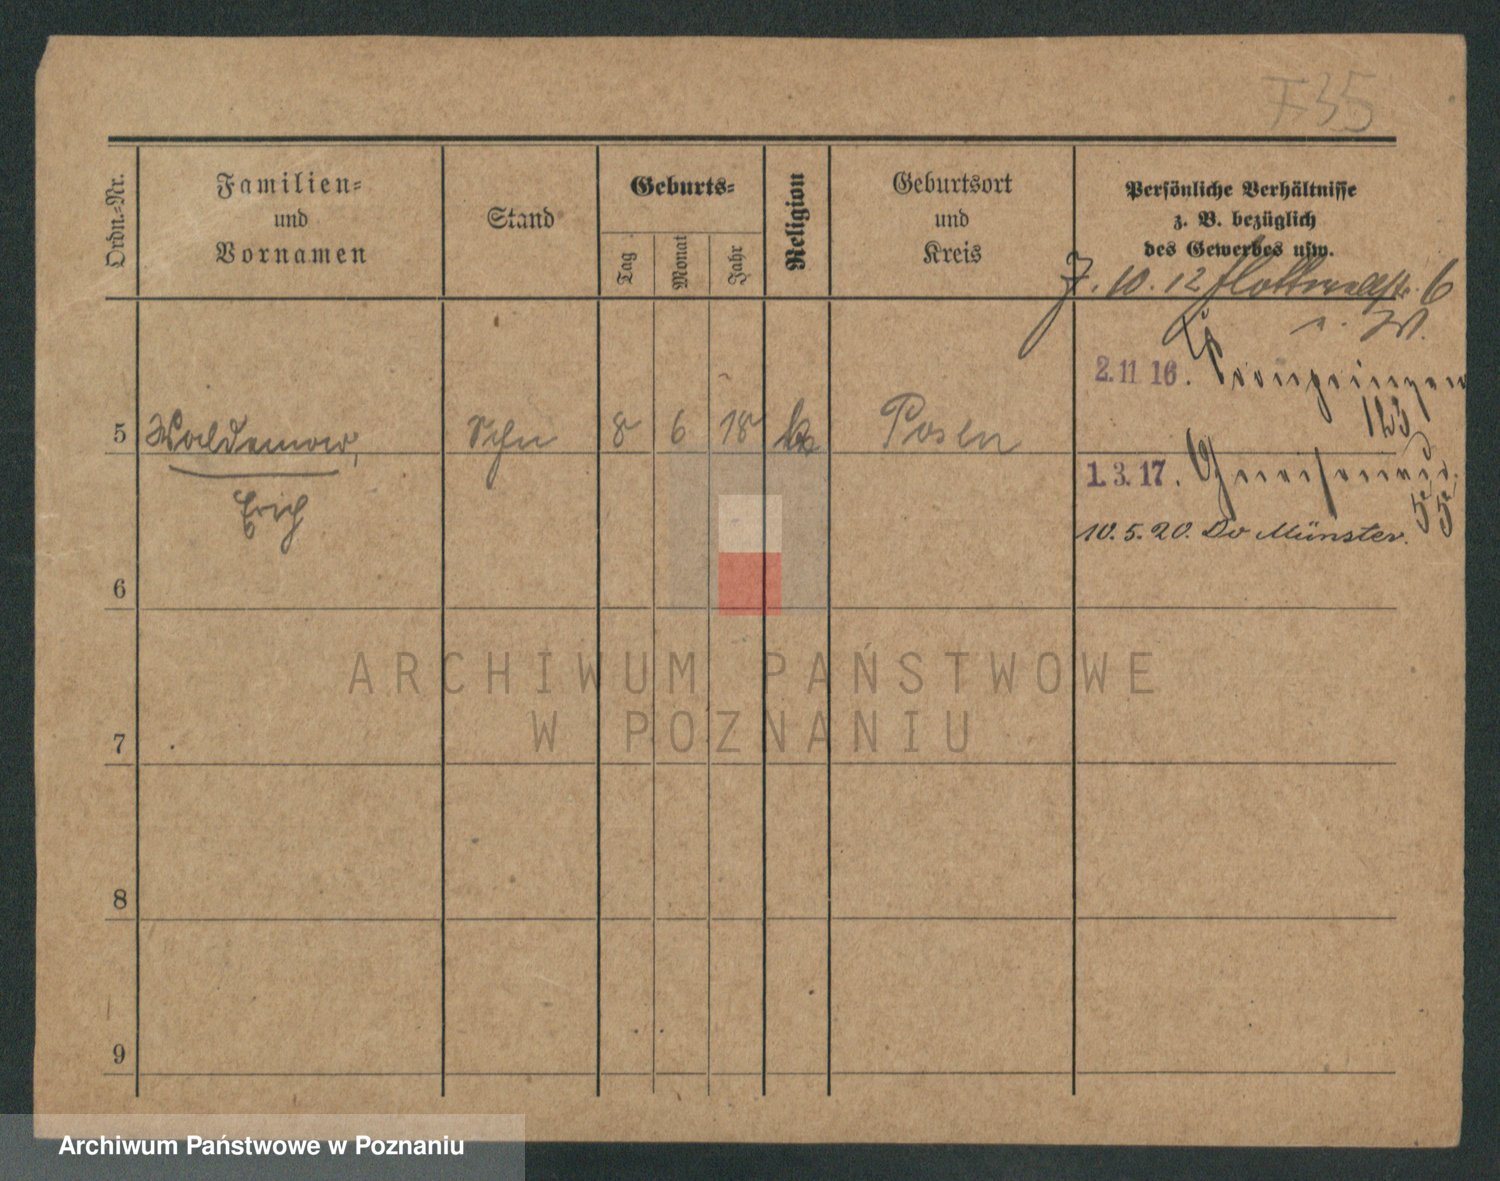 F35
Ordn.-Nr.
Familien-
und
Vornamen
Stand
Geburts-
Tag
Monat
Jahr
Religion
Geburtsort
und
Kreis
Persönliche Verhältnisse
z. B. bezüglich
des Gewerbes usw.
7. 10. 12 6
2. 11 16. Kronprinzen
123
5 Waldemar, Sohn 8 6 18 k Posen
Erich
1. 3. 17. Gneisenaus.
55
10. 5. 20. Do Münster.
6
7
8
9
ARCHIWUM PAŃSTWOWE
W POZNANIU
Archiwum Państwowe w Poznaniu